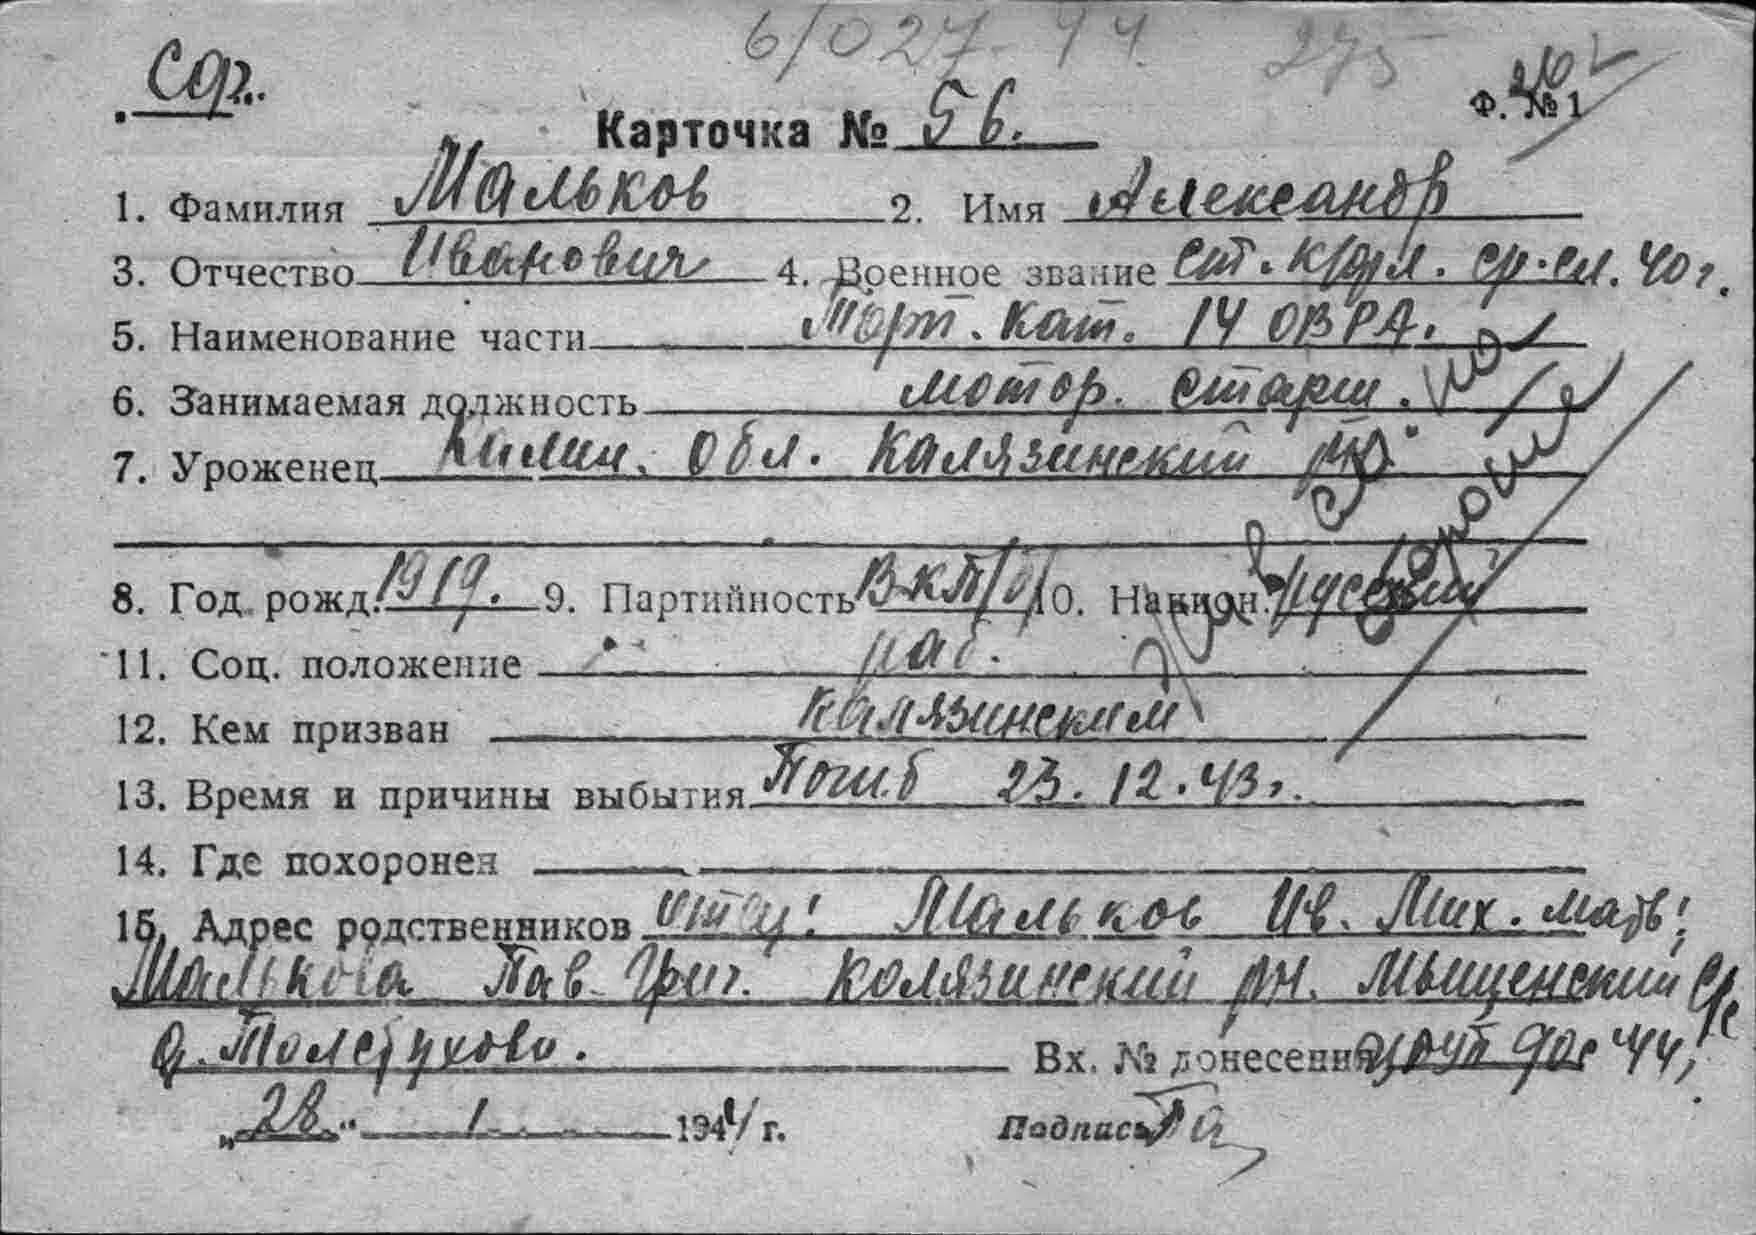 6/027-44. 275
Сср..
Ф. №1
Карточка № 56.
1. Фамилия Мальков 2. Имя Александр
3. Отчество Иванович 4. Военное звание ст. кр.фл. ср.сл. 40 г.
5. Наименование части Торп. кат. 14 ОВРА.
6. Занимаемая должность мотор. старш.
7. Уроженец Калин. обл. Калязинский
8. Год рожд. 1919. 9. Партийность ВКП/б/ 10. Национ. русский
11. Соц. положение раб.
12. Кем призван Калязинским
13. Время и причины выбытия Погиб 23.12.43г.
14. Где похоронен
15. Адрес родственников отец: Мальков Ив. Мих. мать:
Малькова Пав. Григ. Колязинский рн.
д.
Вх. № донесения 44г.
„28" 1 1944 г. Подпись